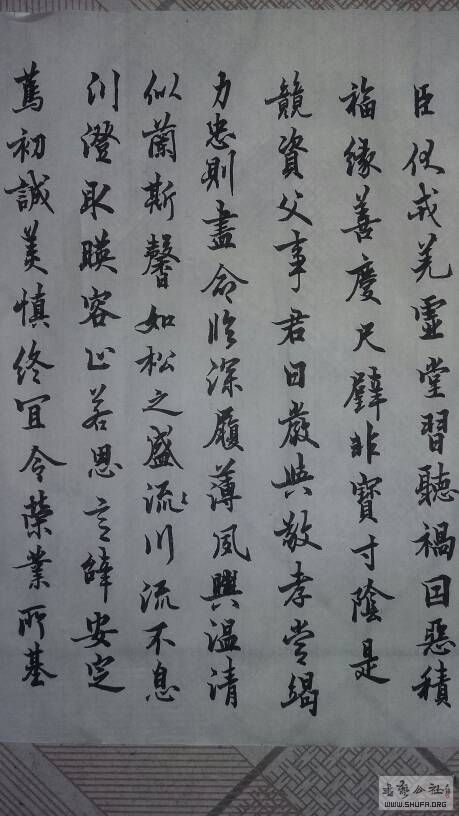 臣伏戎羌虛堂習聽禍因惡積
福緣善慶尺璧非寶寸陰是
競資父事君曰嚴與敬孝當竭
力忠則盡命臨深履薄夙興溫清
似蘭斯馨如松之盛流川流不息
川澄取暎容止若思言辭安定
篤初誠美慎終宜令榮業所基
WWW.SHUFA.ORG